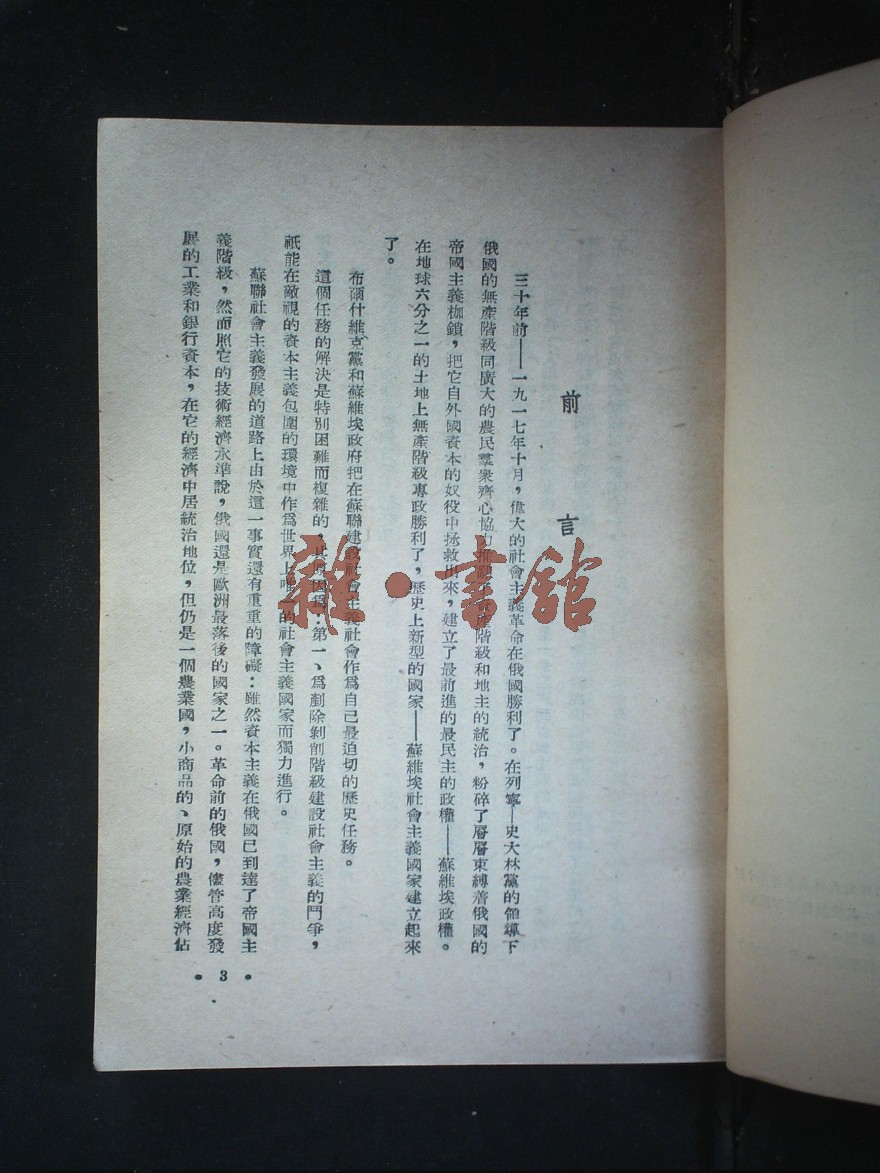 前言
三十年前——一九一七年十月，偉大的社會主義革命在俄國勝利了。在列寧—史大林黨的領導下
俄國的無產階級同廣大的農民羣衆齊心協力推翻了資產階級和地主的統治，粉碎了層層束縛着俄國的
帝國主義枷鎖，把它自外國資本的奴役中拯救出來，建立了最前進的最民主的政權——蘇維埃政權。
在地球六分之一的土地上無產階級專政勝利了，歷史上新型的國家——蘇維埃社會主義國家建立起來
了。
布爾什維克黨和蘇維埃政府把在蘇聯建設社會主義社會作爲自己最迫切的歷史任務。
這個任務的解決是特別困難而複雜的，其原因爲：第一、爲剷除剝削階級建設社會主義的鬥爭，
祇能在敵視的資本主義包圍的環境中作爲世界上唯一的社會主義國家而獨力進行。
蘇聯社會主義發展的道路上由於這一事實還有重重的障礙：雖然資本主義在俄國已到達了帝國主
義階級，然而照它的技術經濟水準說，俄國還是歐洲最落後的國家之一。革命前的俄國，儘管高度發
展的工業和銀行資本，在它的經濟中居統治地位，但仍是一個農業國，小商品的、原始的農業經濟佔
• 3 •
雜·書館